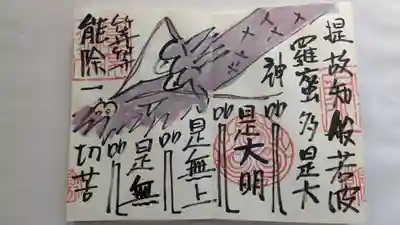 提故知般若波
羅蜜多是大
神呪
是大明
呪
是無上
呪
是無
等等呪
能除一切苦